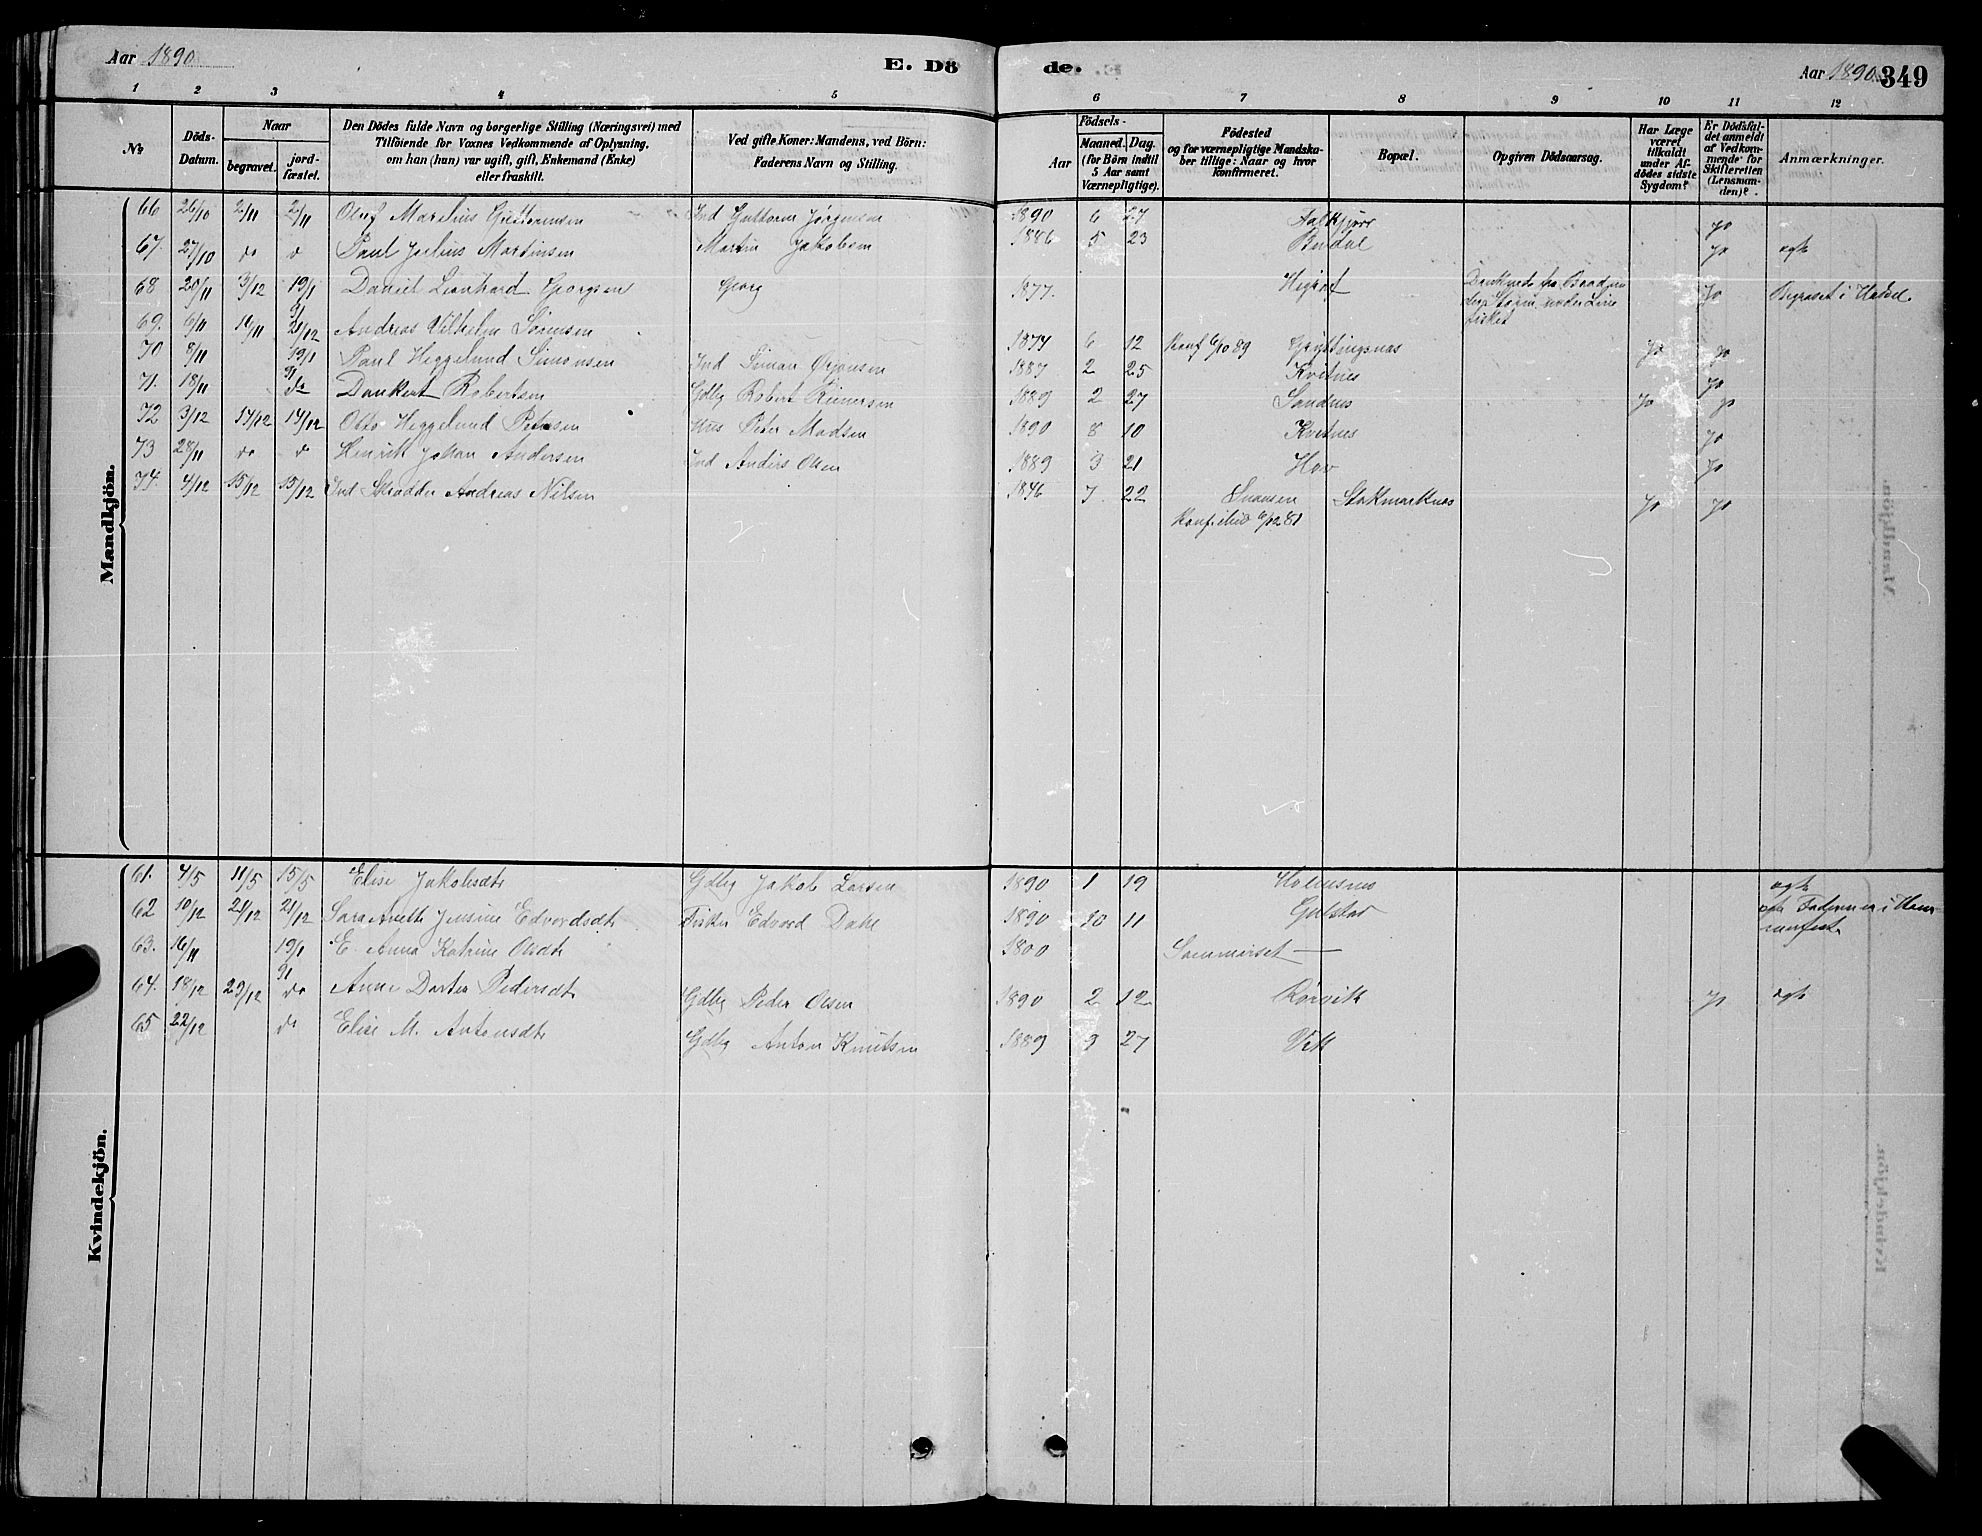 Aar 1890
E. Dö
de.
Aar 1890
349
1 2 3 4 5 6 7 8 9 10 11 12
No
Döds-
Datum.
Naar
begravet.
jord-
fæstet.
Den Dödes fulde Navn og borgerlige Stilling (Næringsvei) med
Tilföiende for Voxnes Vedkommende af Oplysning,
om han (hun) var ugift, gift, Enkemand (Enke)
eller fraskilt.
Ved gifte Koner: Mandens, ved Börn:
Faderens Navn og Stilling.
Födsels-
Aar
Maaned. Dag.
(for Börn indtil
5 Aar samt
Værnepligtige).
Födested
og for værnepligtige Mandska-
ber tillige: Naar og hvor
konfirmeret.
Bopæl.
Opgiven Dödsaarsag.
Har Læge
været
tilkaldt
under Af-
dödes sidste
Sygdom?
Er Dödsfal-
det anmeldt
af Vedkom-
mende for
Skifteretten
(Lensman-
den)?
Anmærkninger.
Mandkjön.
66 26/10 2/11 2/11 Oluf Marelius Guttormsen Ind Guttorm Jørgensen 1890 6 27 Falkfjord jo
67. 27/10 do d Paul Julius Martinsen Martin Jakobsen 1886 5 23 Budal jo ægt
68 20/11 3/12 19/1 91 Daniel Leonhard Georgsen Georg 1877. jo Begravet i Hadsel
69. 6/11 21/12 Andreas Vilhelm Sørensen 1874 6 12 Konf 6/10 89 Gryttingsnes jo jo
70 8/11 19/1 91 Paul Heggelund Simonsen Ind Simon 1887 2 25 Kvitnes jo
71. 18/11 do Dankert Robertsen Gdbg Robert 1889 2 27 Sandnes jo jo
72 3/12 14/12 14/12 Otto Heggelund Petersen Hus Peter Madsen 1890 8 10 Kvitnes jo
73 28/11 do d Henrik Johan Andersen Ind Anders Olsen 1889 3 21 Hov jo
74. 4/12 15/12 15/12 Ind Skrædder Andreas Nilsen 1846 7 22 Snaasen Stokmarknes jo jo
Kvindekjön.
61. 4/5 11/5 15/5 Elise Jakobsdtr Gdbg Jakob Larsen 1890 1 19 Holmsnes ægt
62 10/12 21/12 21/12 Sara Anette Jensine Edvardsdtr Fisker Edvard Dahl 1890 10 11 Gulstad Faderen er i Ham
merfest
63. 16/11 19/1 91 E. Anna Katrine Olsdtr 1800 Sommerset
64. 18/12 29/12 do Anne Dortea Pedersdtr Gdbg Peder Olsen 1890 2 12 Rørvik jo ægt
65 22/12 do Elise M. Antonsdtr Gdbg Anton Knutsen 1889 9 27 Vik